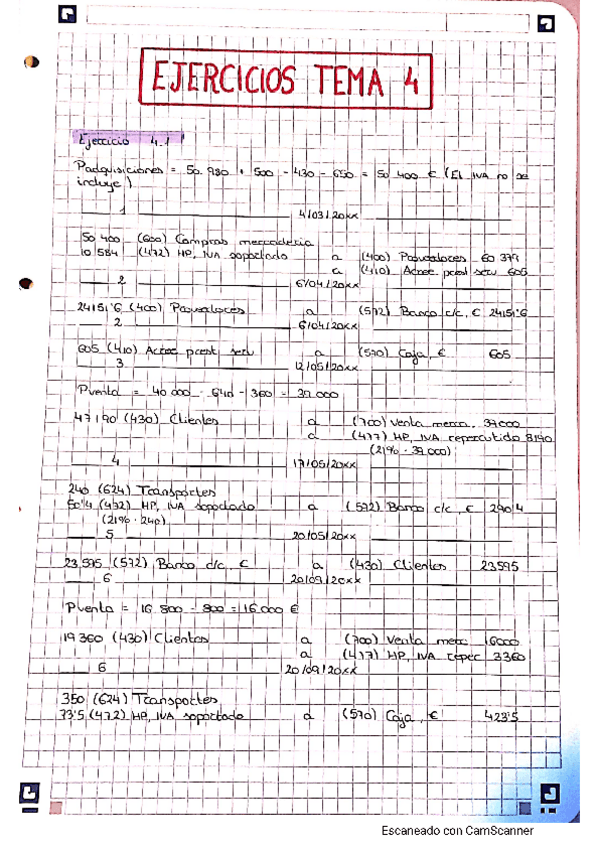 EJERCICIOS TEMA 4
Ejercicio 4.1
Padquisiciones = 50.980 + 500 - 430 - 650 = 50 400 € (El IVA no se
incluye)
1 4/03/20xx
50 400 (600) Compras mercaderia
10 584 (472) HP, IVA soportado a (400) Proveedores 60 379
a (410) Acree. prest serv 605
2 6/04/20xx
24151'6 (400) Proveedores a (572) Banco c/c, € 24151'6
2 6/04/20xx
605 (410) Acree prest serv a (570) Caja, € 605
3 12/05/20xx
Pventa = 40 000 - 640 - 360 = 39.000
47190 (430) Clientes a (700) Venta merca. 39000
a (477) HP, IVA repercutido 8190
(21% · 39.000)
4 17/05/20xx
240 (624) Transportes
50'4 (472) HP, IVA soportado a (572) Banco c/c, € 290'4
(21% · 240)
5 20/05/20xx
23.595 (572) Banco c/c, € a (430) Clientes 23595
6 20/09/20xx
Pventa = 16.800 - 800 = 16.000 €
19360 (430) Clientes a (700) Venta merc 16000
a (477) HP, IVA reper 3360
6 20/09/20xx
350 (624) Transportes
73'5 (472) HP, IVA soportado a (570) Caja, € 423'5
Escaneado con CamScanner